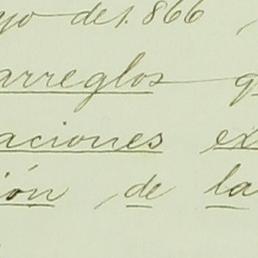 yo de 1.866,
arreglos q
aciones ex
ión, de la